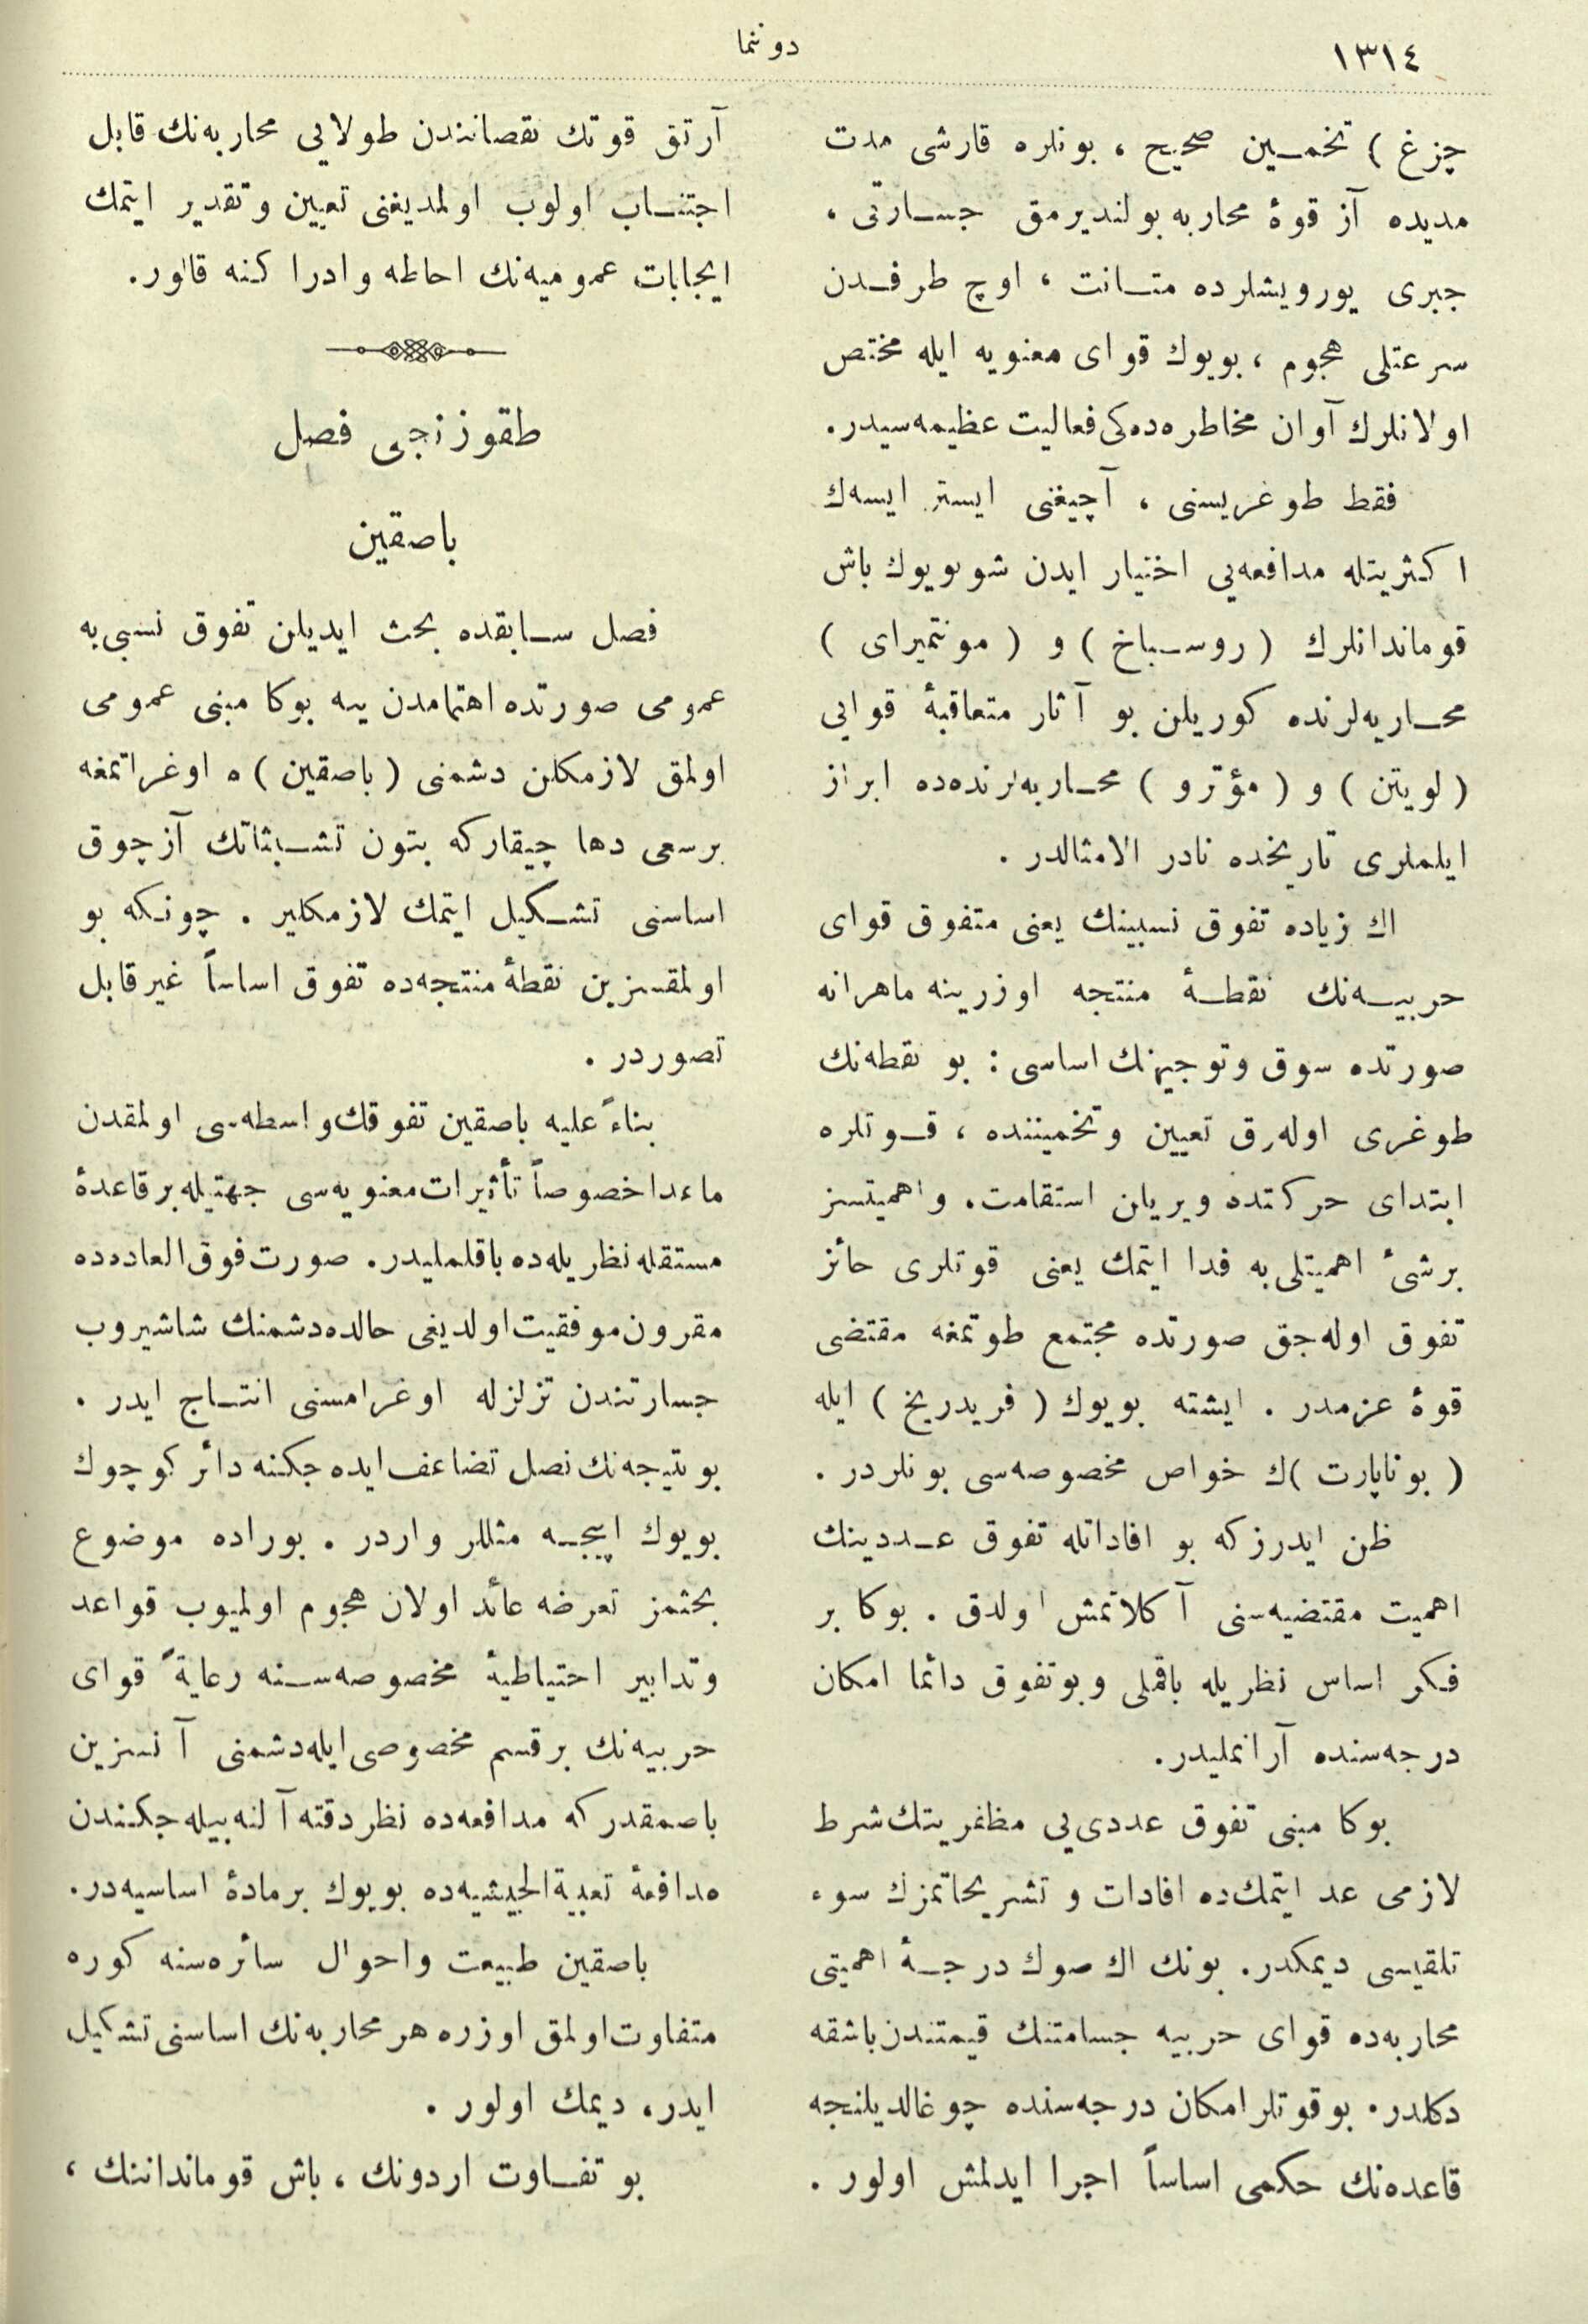 ١٣١٤
دوننما
چزغ ) تخمین صحیح ، بونلره قارشی مدت
مدیده آز قوهٔ محاربه بولندیرمق جسارتی ،
جبری یورویشلرده متانت ، اوچ طرفدن
سرعتلی هجوم ، بویوك قوای معنویه ایله مختص
اولانلرك آوان مخاطره‌ده‌کی فعالیت عظیمه‌سیدر.
فقط طوغریسنی ، آچیغنی ایستر ایسه‌ك
اكثریتله مدافعه‌یی اختیار ایدن شو بویوك باش
قوماندانلرك ( روسباخ ) و ( مونتمیرای )
محاربه‌لرنده كوریلن بو آثار متعاقبهٔ قوایی
( لویتن ) و ( مؤترو ) محاربه‌لرنده‌ده ابراز
ایلملری تاریخده نادر الامثالدر .
اك زیاده تفوق نسبینك یعنی متفوق قوای
حربیه‌نك نقطهٔ منتجه اوزرینه ماهرانه
صورتده سوق وتوجیهنك اساسی : بو نقطه‌نك
طوغری اوله‌رق تعیین وتخمیننده ، قوتلره
ابتدای حركتده ویریلن استقامت. واهمیتسز
برشیٔ اهمیتلی‌یه فدا ایتمك یعنی قوتلری حائز
تفوق اوله‌جق صورتده مجتمع طوتمغه مقتضی
قوهٔ عزمدر . ایشته بویوك ( فریدریخ ) ایله
( بوناپارت )ك خواص مخصوصه‌سی بونلردر .
ظن ایدرزكه بو افاداتله تفوق عددینك
اهمیت مقتضیه‌سنی آكلاتمش اولدق . بوكا بر
فكر اساس نظریله باقملی وبوتفوق دائما امكان
درجه‌سنده آرانملیدر.
بوكا مبنی تفوق عددی‌یی مظفریتك شرط
لازمی عد ایتمك‌ده افادات و تشریحاتمزك سوء
تلقیسی دیمكدر. بونك اك صوك درجهٔ اهمیتی
محاربه‌ده قوای حربیه جسامتنك قیمتندن باشقه
دكلدر. بوقوتلر امكان درجه‌سنده چوغالدیلنجه
قاعده‌نك حكمی اساساً اجرا ایدلمش اولور .
آرتق قوتك نقصانندن طولایی محاربه‌نك قابل
اجتناب اولوب اولمدیغنی تعیین وتقدیر ایتمك
ایجابات عمومیه‌نك احاطه وادراكنه قالور.
طقوزنجی فصل
باصقین
فصل سابقده بحث ایدیلن تفوق نسبی‌یه
عمومی صورتده اهتمامدن ینه بوكا مبنی عمومی
اولمق لازمكلن دشمنی ( باصقین ) ه اوغراتمغه
برسعی دها چیقاركه بتون تشبثاتك آزچوق
اساسنی تشكیل ایتمك لازمكلیر . چونكه بو
اولمقسزین نقطهٔ منتجه‌ده تفوق اساساً غیرقابل
تصوردر .
بناءً علیه باصقین تفوقك واسطه‌سی اولمقدن
ماعدا خصوصاً تأثیرات معنویه‌سی جهتیله برقاعدهٔ
مستقله نظریله‌ده باقلملیدر. صورت فوق‌العاده‌ده
مقرون موفقیت اولدیغی حالده دشمنك شاشیروب
جسارتندن تزلزله اوغرامسنی انتاج ایدر .
بونتیجه‌نك نصل تضاعف ایده‌جكنه دائر كوچوك
بویوك اییجه مثللر واردر . بوراده موضوع
بحثمز تعرضه عائد اولان هجوم اولمیوب قواعد
وتدابیر احتیاطیهٔ مخصوصه‌سنه رعایةً قوای
حربیه‌نك برقسم مخصوصی ایله دشمنی آنسزین
باصمقدركه مدافعه‌ده نظر دقته آلنه‌بیله‌جكندن
مدافعهٔ تعبیة‌الجیشیه‌ده بویوك برمادهٔ اساسیه‌در.
باصقین طبیعت واحوال سائره‌سنه كوره
متفاوت اولمق اوزره هر محاربه‌نك اساسنی تشكیل
ایدر، دیمك اولور .
بو تفاوت اردونك ، باش قومانداننك ،